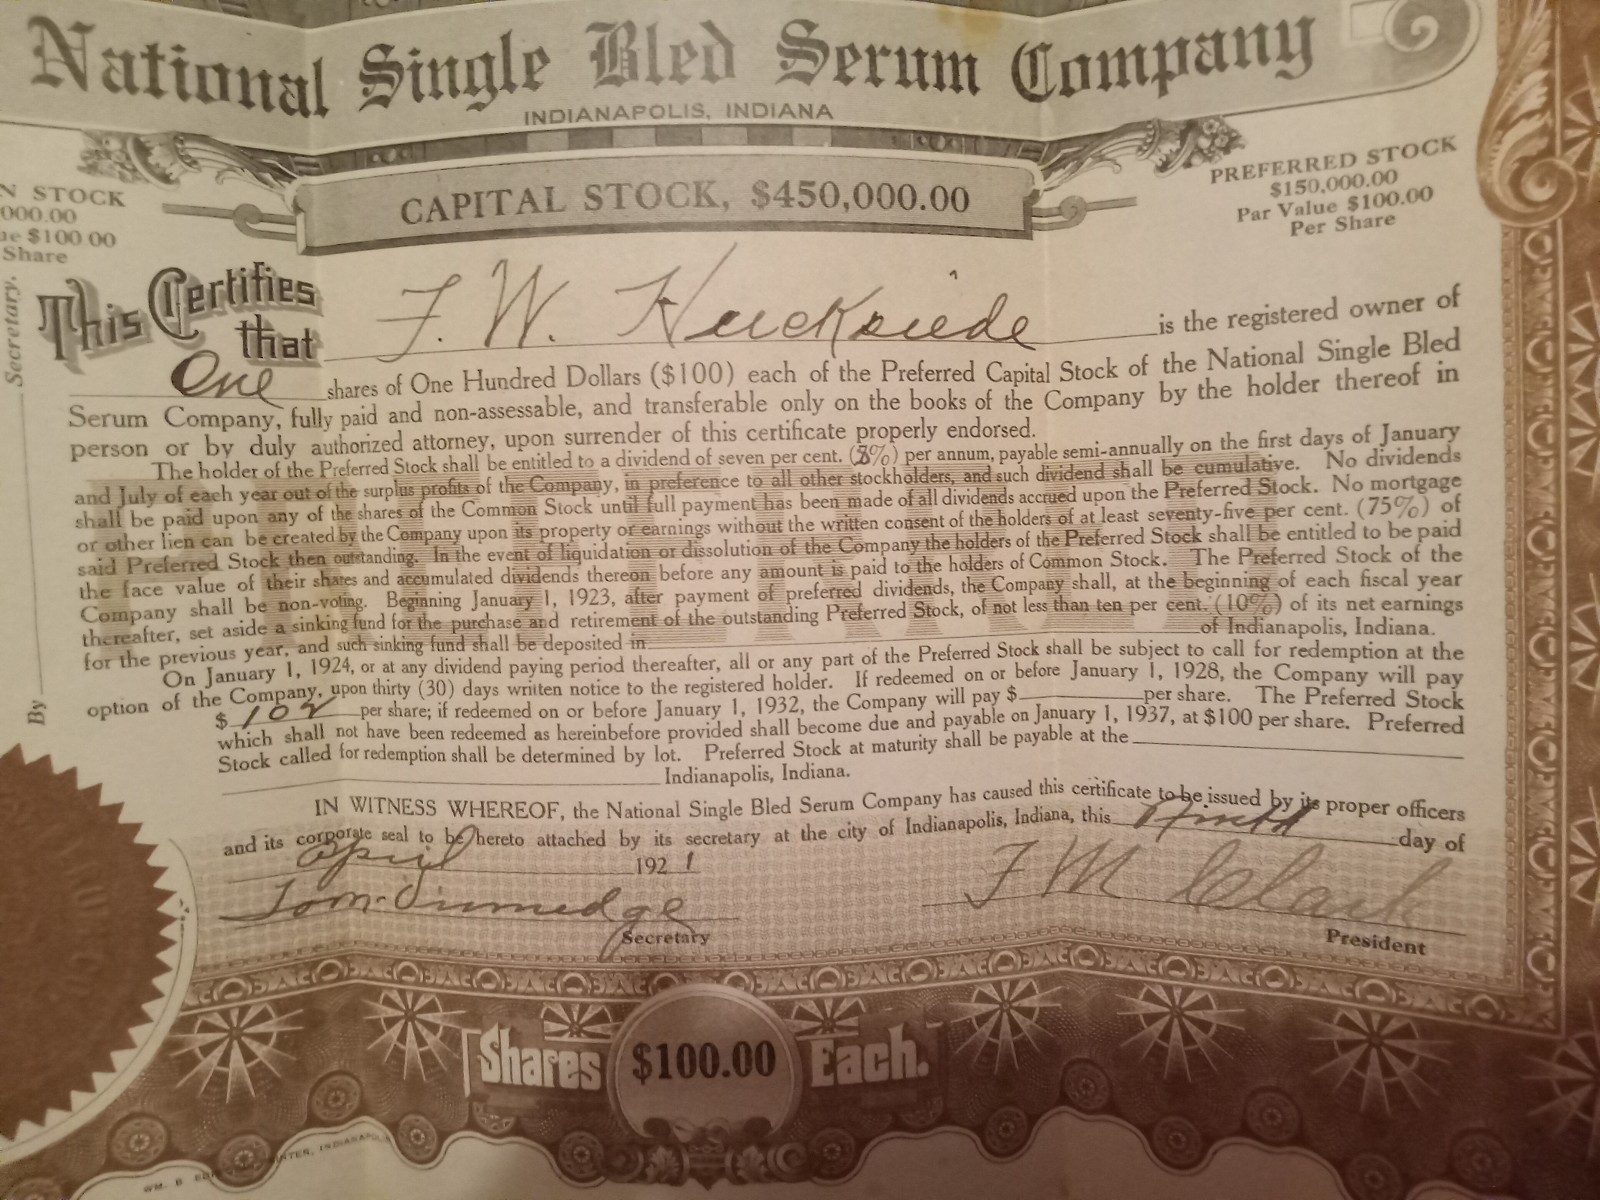 National Single Bled Serum Company
INDIANAPOLIS, INDIANA
N STOCK
000.00
ue $100.00
Share
CAPITAL STOCK, $450,000.00
PREFERRED STOCK
$150,000.00
Par Value $100.00
Per Share
Secretary.
By
This Certifies that F. W. is the registered owner of
One shares of One Hundred Dollars ($100) each of the Preferred Capital Stock of the National Single Bled
Serum Company, fully paid and non-assessable, and transferable only on the books of the Company by the holder thereof in
person or by duly authorized attorney, upon surrender of this certificate properly endorsed.
The holder of the Preferred Stock shall be entitled to a dividend of seven per cent. (8%) per annum, payable semi-annually on the first days of January
and July of each year out of the surplus profits of the Company, in preference to all other stockholders, and such dividend shall be cumulative. No dividends
shall be paid upon any of the shares of the Common Stock until full payment has been made of all dividends accrued upon the Preferred Stock. No mortgage
or other lien can be created by the Company upon its property or earnings without the written consent of the holders of at least seventy-five per cent. (75%) of
said Preferred Stock then outstanding. In the event of liquidation or dissolution of the Company the holders of the Preferred Stock shall be entitled to be paid
the face value of their shares and accumulated dividends thereon before any amount is paid to the holders of Common Stock. The Preferred Stock of the
Company shall be non-voting. Beginning January 1, 1923, after payment of preferred dividends, the Company shall, at the beginning of each fiscal year
thereafter, set aside a sinking fund for the purchase and retirement of the outstanding Preferred Stock, of not less than ten per cent. (10%) of its net earnings
for the previous year, and such sinking fund shall be deposited in of Indianapolis, Indiana.
On January 1, 1924, or at any dividend paying period thereafter, all or any part of the Preferred Stock shall be subject to call for redemption at the
option of the Company, upon thirty (30) days written notice to the registered holder. If redeemed on or before January 1, 1928, the Company will pay
$ 102 per share; if redeemed on or before January 1, 1932, the Company will pay $ per share. The Preferred Stock
which shall not have been redeemed as hereinbefore provided shall become due and payable on January 1, 1937, at $100 per share. Preferred
Stock called for redemption shall be determined by lot. Preferred Stock at maturity shall be payable at the
Indianapolis, Indiana.
IN WITNESS WHEREOF, the National Single Bled Serum Company has caused this certificate to be issued by its proper officers
and its corporate seal to be hereto attached by its secretary at the city of Indianapolis, Indiana, this day of
April 1921
Tom
Secretary
F M Clark
President
Shares $100.00 Each.
WM. B.